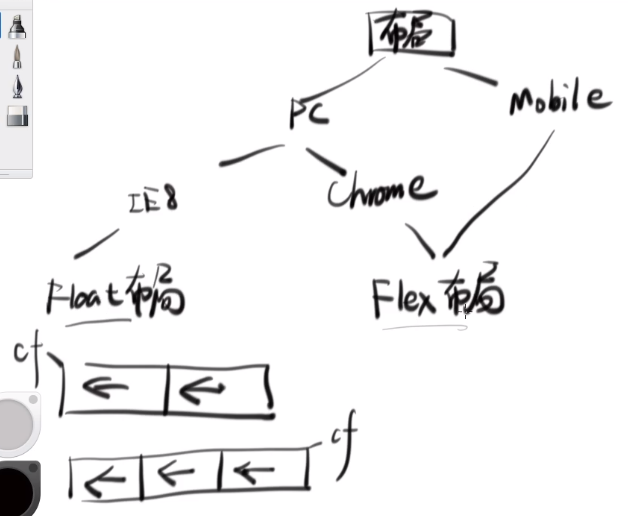 布局
PC
Mobile
IE8
Chrome
Float布局
Flex布局
cf
cf